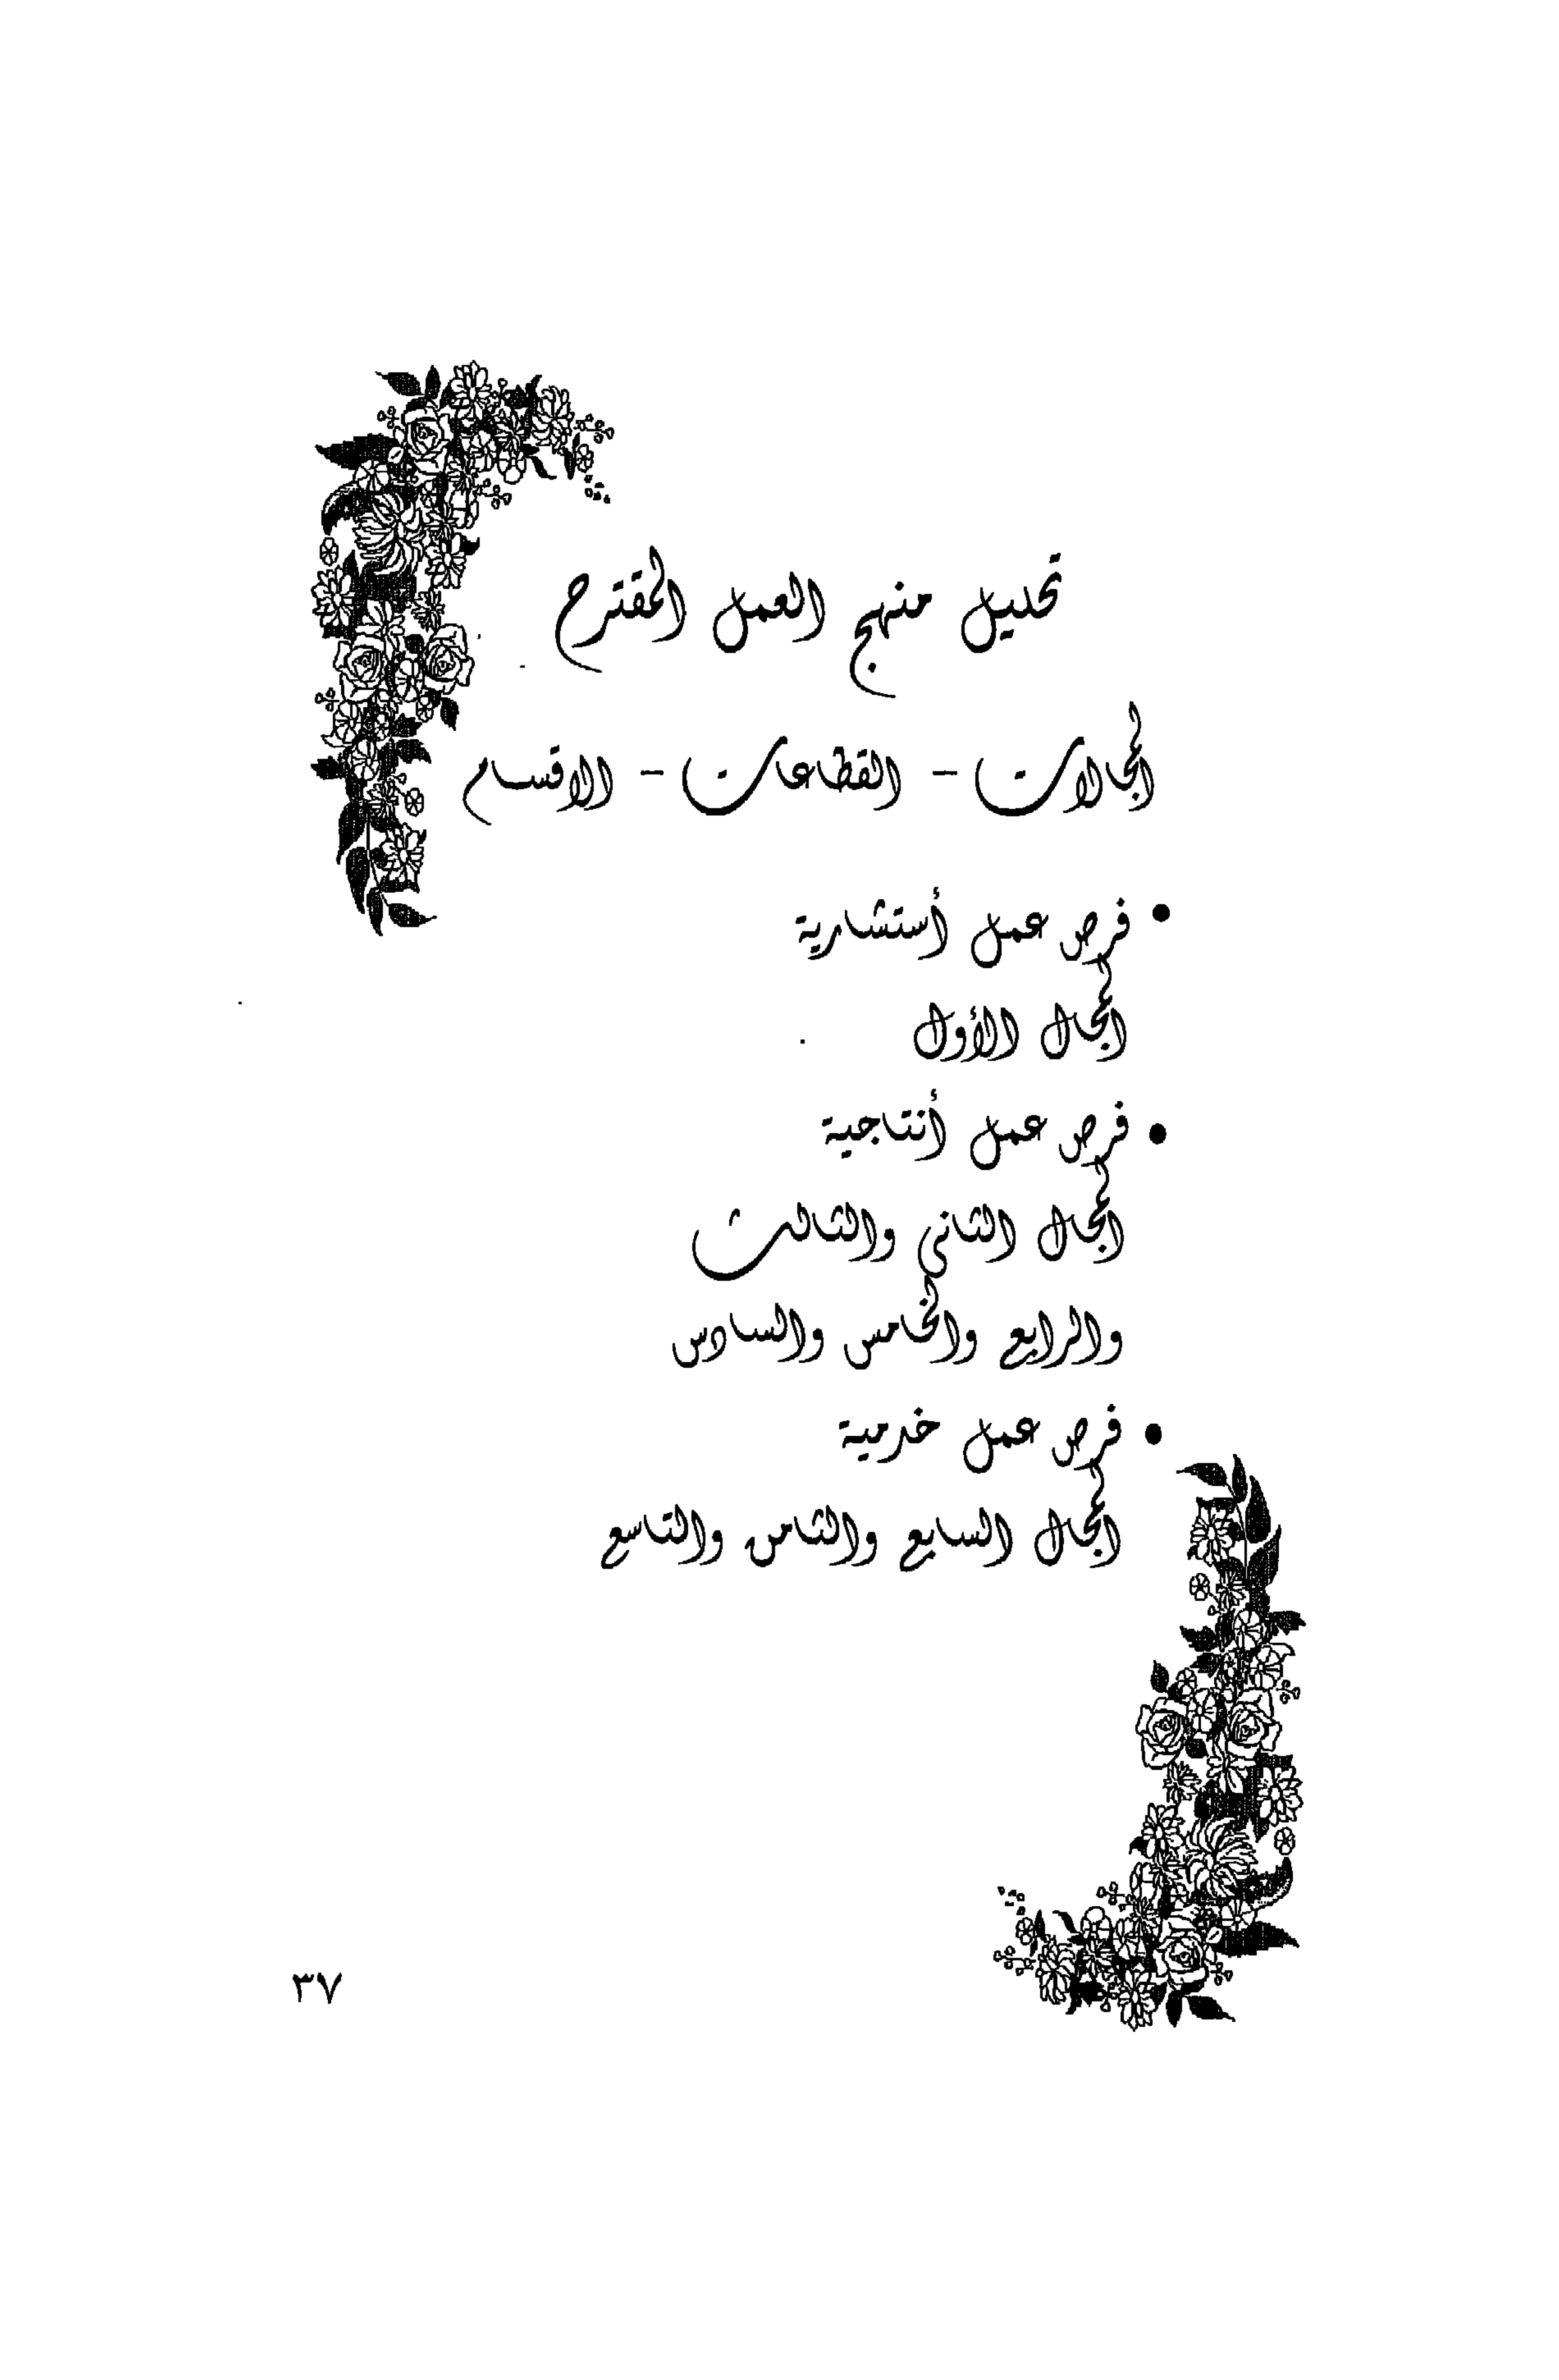 تحليل منهج العمل المقترح
المجالات - القطاعات - الاقسام
• فرص عمل أستشارية
المجال الأول
• فرص عمل أنتاجية
المجال الثانى والثالث
والرابع والخامس والسادس
• فرص عمل خدمية
المجال السابع والثامن والتاسع
٣٧